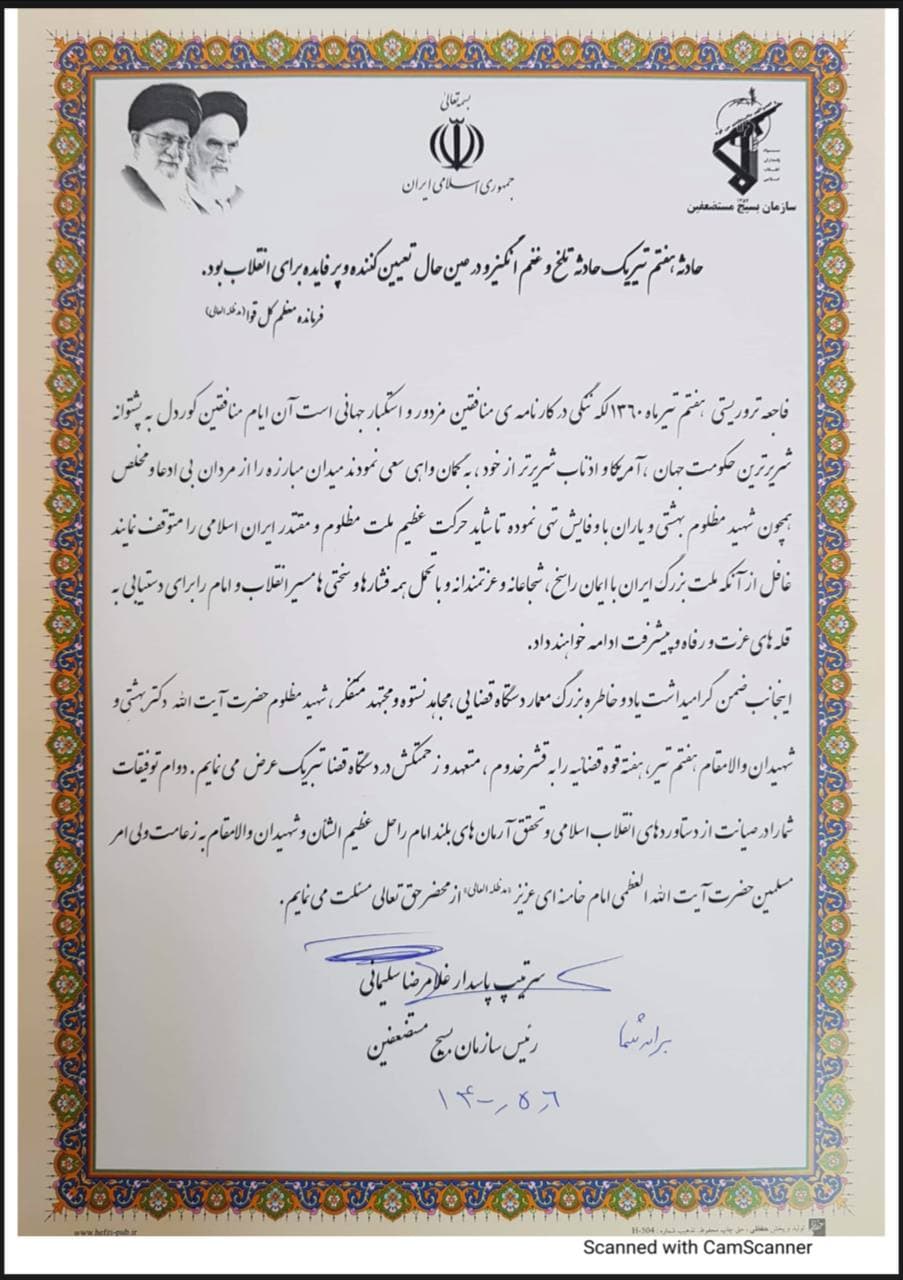 بسمه تعالی
جمهوری اسلامی ایران
سپاه
پاسداران
انقلاب
اسلامی
سازمان بسیج مستضعفین
حادثه هفتم تیر یک حادثه تلخ و غم انگیز و در عین حال تعیین کننده و پر فایده برای انقلاب بود.
فرمانده معظم کل قوا (مدظله العالی)
فاجعه تروریستی هفتم تیرماه ۱۳۶۰ لکه ننگی در کارنامه ی منافقین مزدور و استکبار جهانی است آن ایام منافقین کوردل به پشتوانه
شریرترین حکومت جهان ، آمریکا و اذناب شریرتر از خود ، به گمان واهی سعی نمودند میدان مبارزه را از مردان بی ادعا و مخلص
همچون شهید مظلوم بهشتی و یاران باوفایش تهی نموده تا شاید حرکت عظیم ملت مظلوم و مقتدر ایران اسلامی را متوقف نمایند
غافل از آنکه ملت بزرگ ایران با ایمان راسخ ، شجاعانه و عزتمندانه و با تحمل همه فشارها و سختی ها مسیر انقلاب و امام را برای دستیابی به
قله های عزت و رفاه و پیشرفت ادامه خواهند داد.
اینجانب ضمن گرامیداشت یاد و خاطره بزرگ معمار دستگاه قضایی ، مجاهد نستوه و مجتهد متفکر ، شهید مظلوم حضرت آیت الله دکتر بهشتی و
شهیدان والامقام هفتم تیر ، هفته قوه قضائیه را به قشر خدوم ، متعهد و زحمتکش در دستگاه قضا تبریک عرض می نمایم . دوام توفیقات
شما را در صیانت از دستاوردهای انقلاب اسلامی و تحقق آرمان های بلند امام راحل عظیم الشان و شهیدان والامقام به زعامت ولی امر
مسلمین حضرت آیت الله العظمی امام خامنه ای عزیز «مدظله العالی» از محضر حق تعالی مسئلت می نمایم .
سرتیپ پاسدار غلامرضا سلیمانی
رئیس سازمان بسیج مستضعفین
۱۴۰۰٫۵٫۶
www.hefzi-pub.ir
تولید و پخش حفظی ، حق چاپ محفوظ. تذهیب شماره : H-504
Scanned with CamScanner